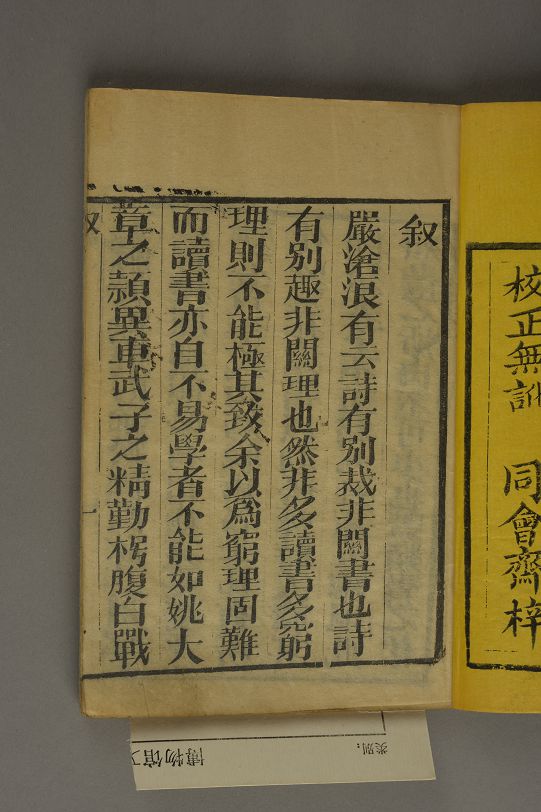 校正無訛 同會齋梓
叙
嚴滄浪有云詩有別裁非關書也詩
有別趣非關理也然非多讀書多窮
理則不能極其致余以爲窮理固難
而讀書亦自不易學者不能如姚大
章之穎異車武子之精勤枵腹白戰
叙
一
类别:
博物馆